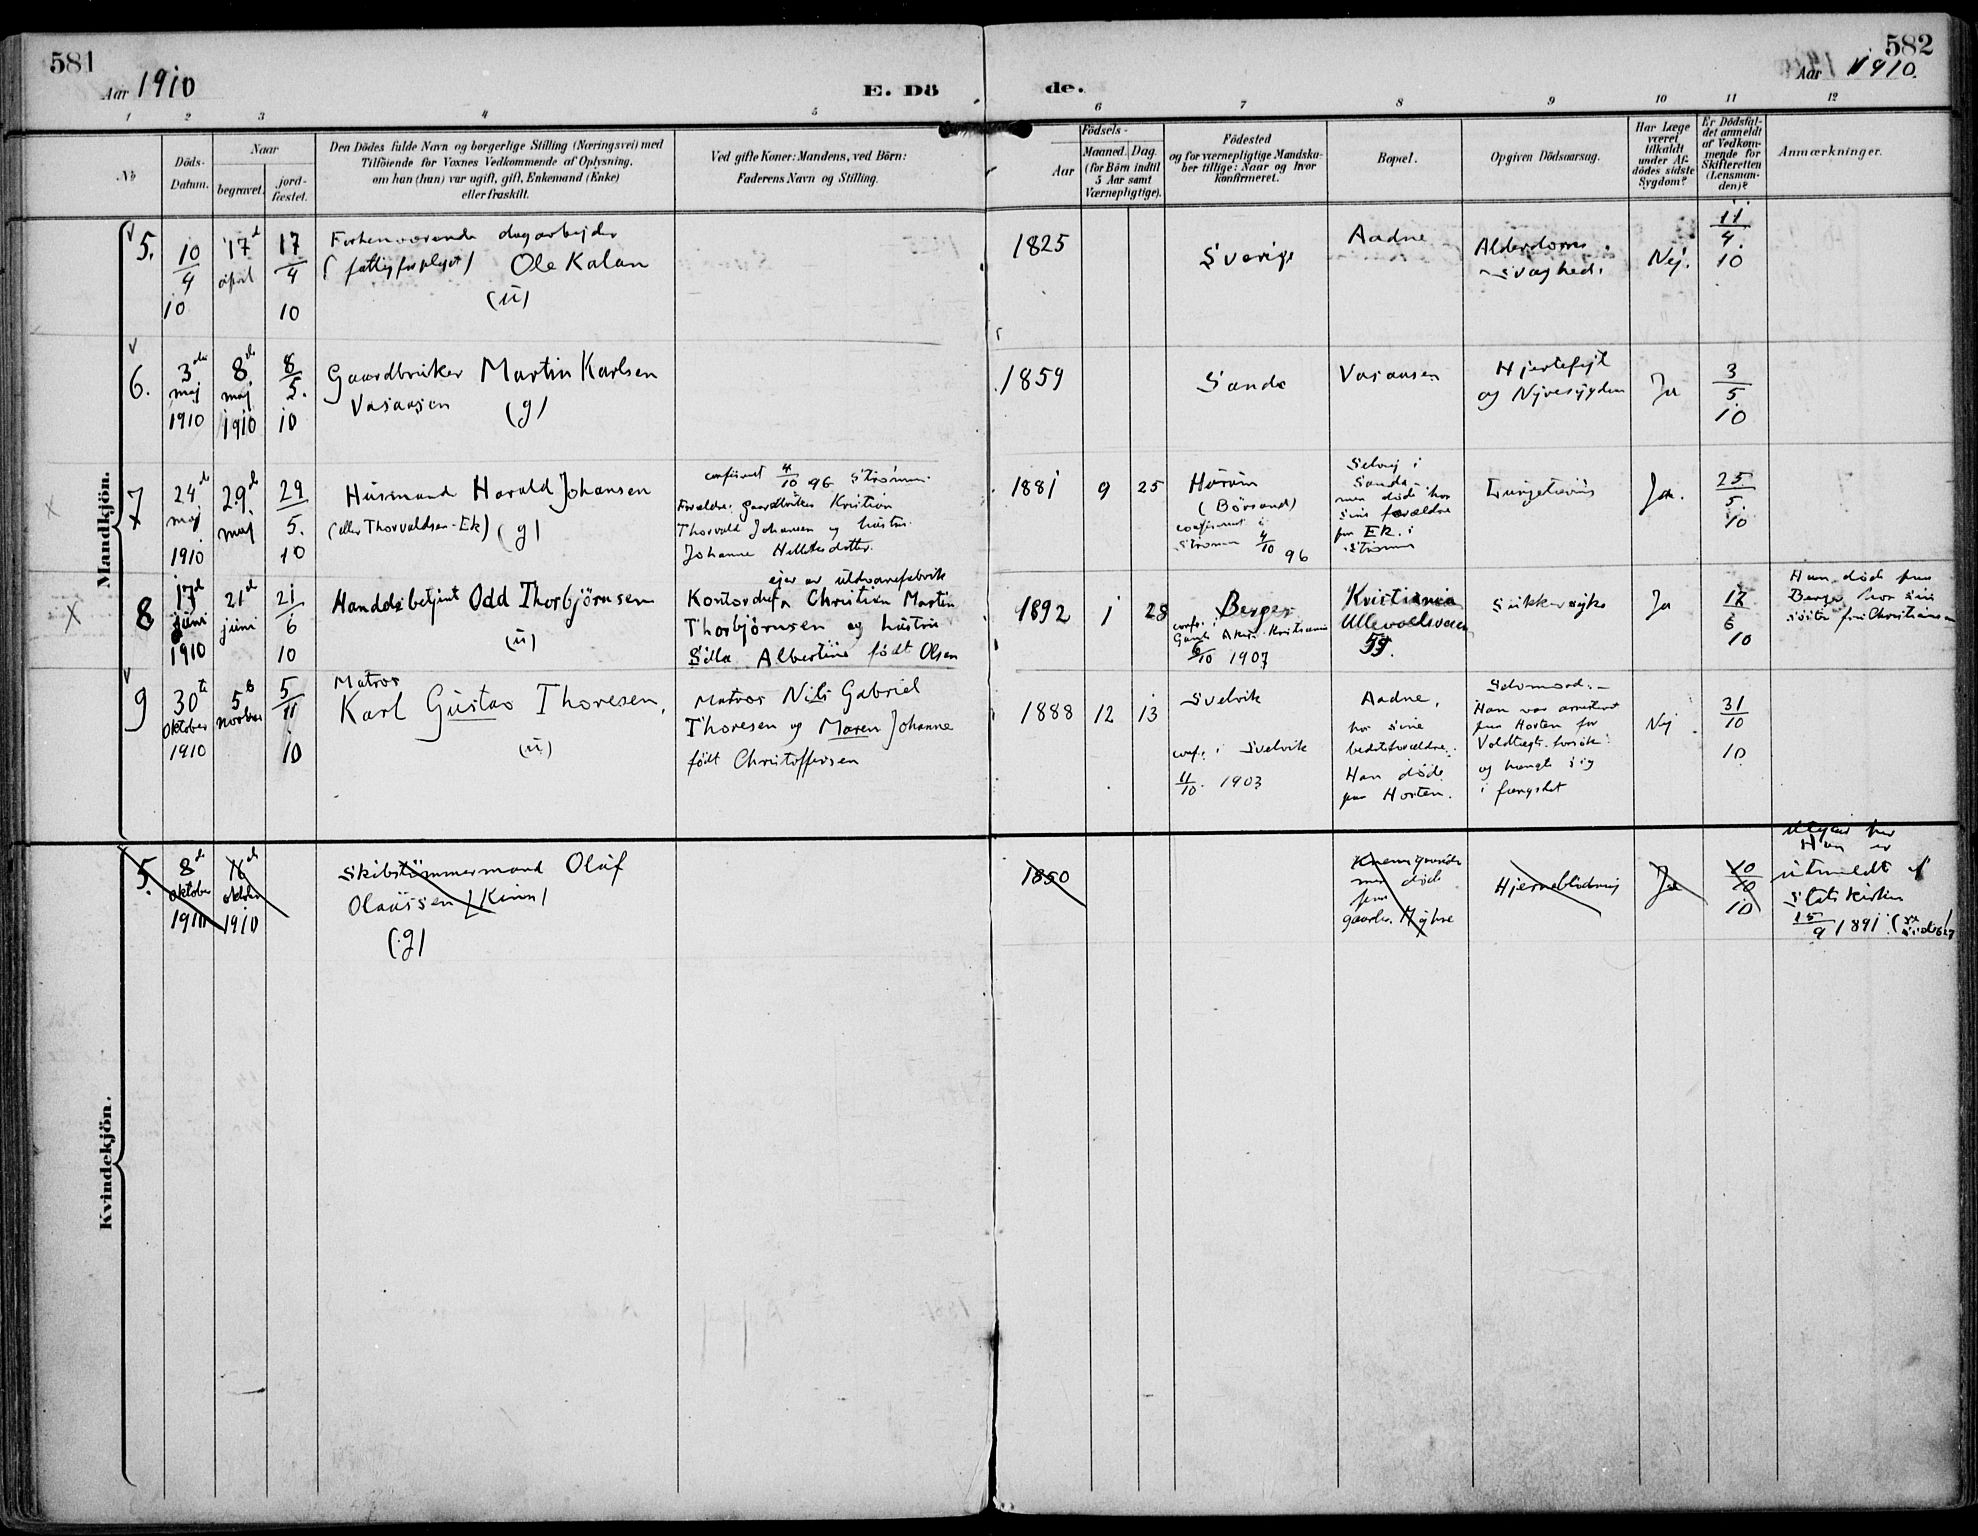 581
Aar 1910
E. Dö
de.
582
Aar 1910.
1 2 3 4 5 6 7 8 9 10 11 12
No
Döds-
Datum.
Naar
begravet.
jord-
fæstet.
Den Dödes fulde Navn og borgerlige Stilling (Næringsvei) med
Tilföiende for Voxnes Vedkommende af Oplysning,
om han (hun) var ugift, gift, Enkemand (Enke)
eller fraskilt.
Ved gifte Koner: Mandens, ved Börn:
Faderens Navn og Stilling.
Födsels-
Aar
Maaned. Dag.
(for Börn indtil
5 Aar samt
Værnepligtige).
Födested
og for værnepligtige Mandska-
ber tillige: Naar og hvor
konfirmeret.
Bopæl.
Opgiven Dödsaarsag.
Har Læge
været
tilkaldt
under Af-
dödes sidste
Sygdom?
Er Dödsfal-
det anmeldt
af Vedkom-
mende for
Skifteretten
(Lensman-
den)?
Anmærkninger.
Mandkjön.
5.
10
4
10
17 d
april
17
4
10
Forhenværende dagarbejder
(fattigforplejet) Ole Kalan
(ü)
1825
Sverige
Aadne
Alderdoms
svaghed.
Nej.
11
4.
10
6.
3 die
maj
1910
8 de
maj
1910
8
5.
10
Gaardbruker Martin Karlsen
Vasaasen (g)
1859
Sande
Vasaasen
Hjertefejl
og Nyresygdom
Ja
3
5
10
7
24 de
maj
1910
29 d
maj
29
5.
10
Husmand Harald Johansen
(eller Thorvaldsen-Ek) (g)
confirmert 4/10 96 Strømm.
Forældre: gaardbruker Kristian
Thorvald Johansen og hustru
Johanne
1881 9 25
Hurum
(Börsand)
confirmert i
Strømm 4/10 96
Selvej i
Sande
men døde hos
sine forældre
paa Ek. i
Strømm
Ja.
25
5
10
8
17 d
juni
1910
21 de
juni
21
6
10
Handelsbetjent Odd Thorbjörnsen
(ü)
ejer av uldvarefabrik
Kontorchef Christian Martin
Thorbjörnsen og hustru
Silla Albertine født Olsen
1892 1 28
Berger
conf. i
Gamle Aker Kristiania
6/10 1907
Kristiania
Ullevoldsveien
59.
Sukkersyke
Ja
17
6
10
Han døde paa
Berger hos sin
søster fru Christiansen
9
30 te
oktober
1910
5 te
november
5
11
10
Matros
Karl Gustav Thoresen,
(ü)
Matros Nils Gabriel
Thoresen og Maren Johanne
født Christoffersen
1888 12 13
Svelvik
conf. i Svelvik
11/10. 1903
Aadne,
hos sine
bedsteforældre.
Han døde
paa Horten.
Selvmord.-
Han var arrestert
paa Horten for
Voldtægtsforsök
og hængte sig
i fængslet
Nej
31
10
10
Kvindekjön.
5.
8 de
oktober
1910
oktober
1910
Skibstömmermand Oluf
Olaüssen (Kinn)
(g)
1850
men døde
paa
gaarden Myhre
Hjerneblødning
Ja
10
10
10
utgaar her
Han er
utmeldt af
Statskirken
15/9 1891. (se